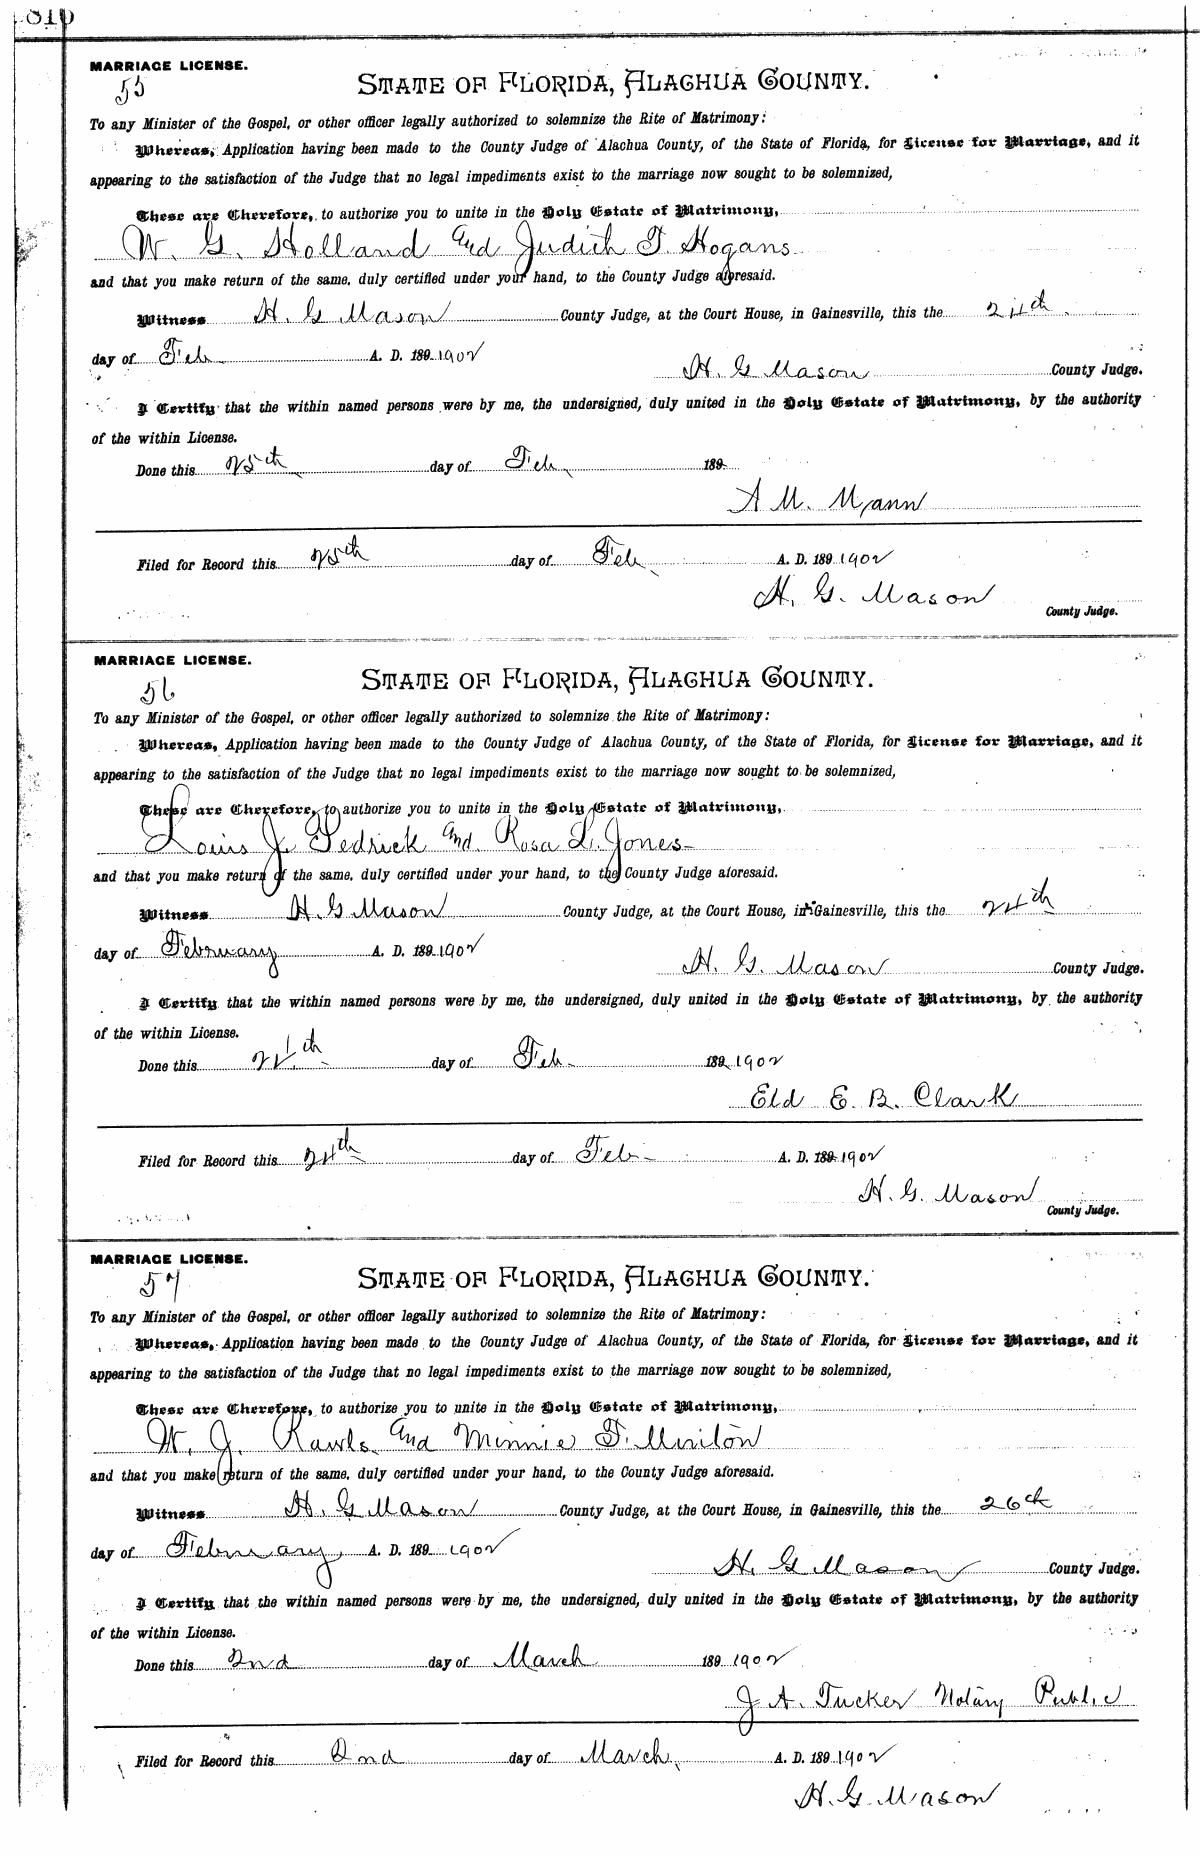 MARRIAGE LICENSE.
55
STATE OF FLORIDA, ALACHUA COUNTY.
To any Minister of the Gospel, or other officer legally authorized to solemnize the Rite of Matrimony:
Whereas, Application having been made to the County Judge of Alachua County, of the State of Florida, for License for Marriage, and it
appearing to the satisfaction of the Judge that no legal impediments exist to the marriage now sought to be solemnized,
These are Therefore, to authorize you to unite in the Holy Estate of Matrimony,
W. G. Holland and Judith T. Hogans
and that you make return of the same, duly certified under your hand, to the County Judge aforesaid.
Witness H. G Mason County Judge, at the Court House, in Gainesville, this the 24th
day of Feb A. D. 189 1902
H. G Mason County Judge.
I Certify that the within named persons were by me, the undersigned, duly united in the Holy Estate of Matrimony, by the authority
of the within License.
Done this 25th day of Feb 189
A M. Mann
Filed for Record this 25th day of Feb A. D. 189 1902
H. G. Mason
County Judge.
MARRIAGE LICENSE.
56
STATE OF FLORIDA, ALACHUA COUNTY.
To any Minister of the Gospel, or other officer legally authorized to solemnize the Rite of Matrimony:
Whereas, Application having been made to the County Judge of Alachua County, of the State of Florida, for License for Marriage, and it
appearing to the satisfaction of the Judge that no legal impediments exist to the marriage now sought to be solemnized,
These are Therefore, to authorize you to unite in the Holy Estate of Matrimony,
Louis J. Pedrick and Rosa L. Jones
and that you make return of the same, duly certified under your hand, to the County Judge aforesaid.
Witness H. G Mason County Judge, at the Court House, in Gainesville, this the 24th
day of February A. D. 189 1902
H. G. Mason County Judge.
I Certify that the within named persons were by me, the undersigned, duly united in the Holy Estate of Matrimony, by the authority
of the within License.
Done this 24th day of Feb 189 1902
Eld E. B. Clark
Filed for Record this 24th day of Feb A. D. 189 1902
H. G. Mason
County Judge.
MARRIAGE LICENSE.
57
STATE OF FLORIDA, ALACHUA COUNTY.
To any Minister of the Gospel, or other officer legally authorized to solemnize the Rite of Matrimony:
Whereas, Application having been made to the County Judge of Alachua County, of the State of Florida, for License for Marriage, and it
appearing to the satisfaction of the Judge that no legal impediments exist to the marriage now sought to be solemnized,
These are Therefore, to authorize you to unite in the Holy Estate of Matrimony,
W. J. Rawls and Minnie F. Minton
and that you make return of the same, duly certified under your hand, to the County Judge aforesaid.
Witness H. G Mason County Judge, at the Court House, in Gainesville, this the 26th
day of February A. D. 189 1902
H. G Mason County Judge.
I Certify that the within named persons were by me, the undersigned, duly united in the Holy Estate of Matrimony, by the authority
of the within License.
Done this 2nd day of March 189 1902
J A. Tucker Notary Public
Filed for Record this 2nd day of March A. D. 189 1902
H. G. Mason